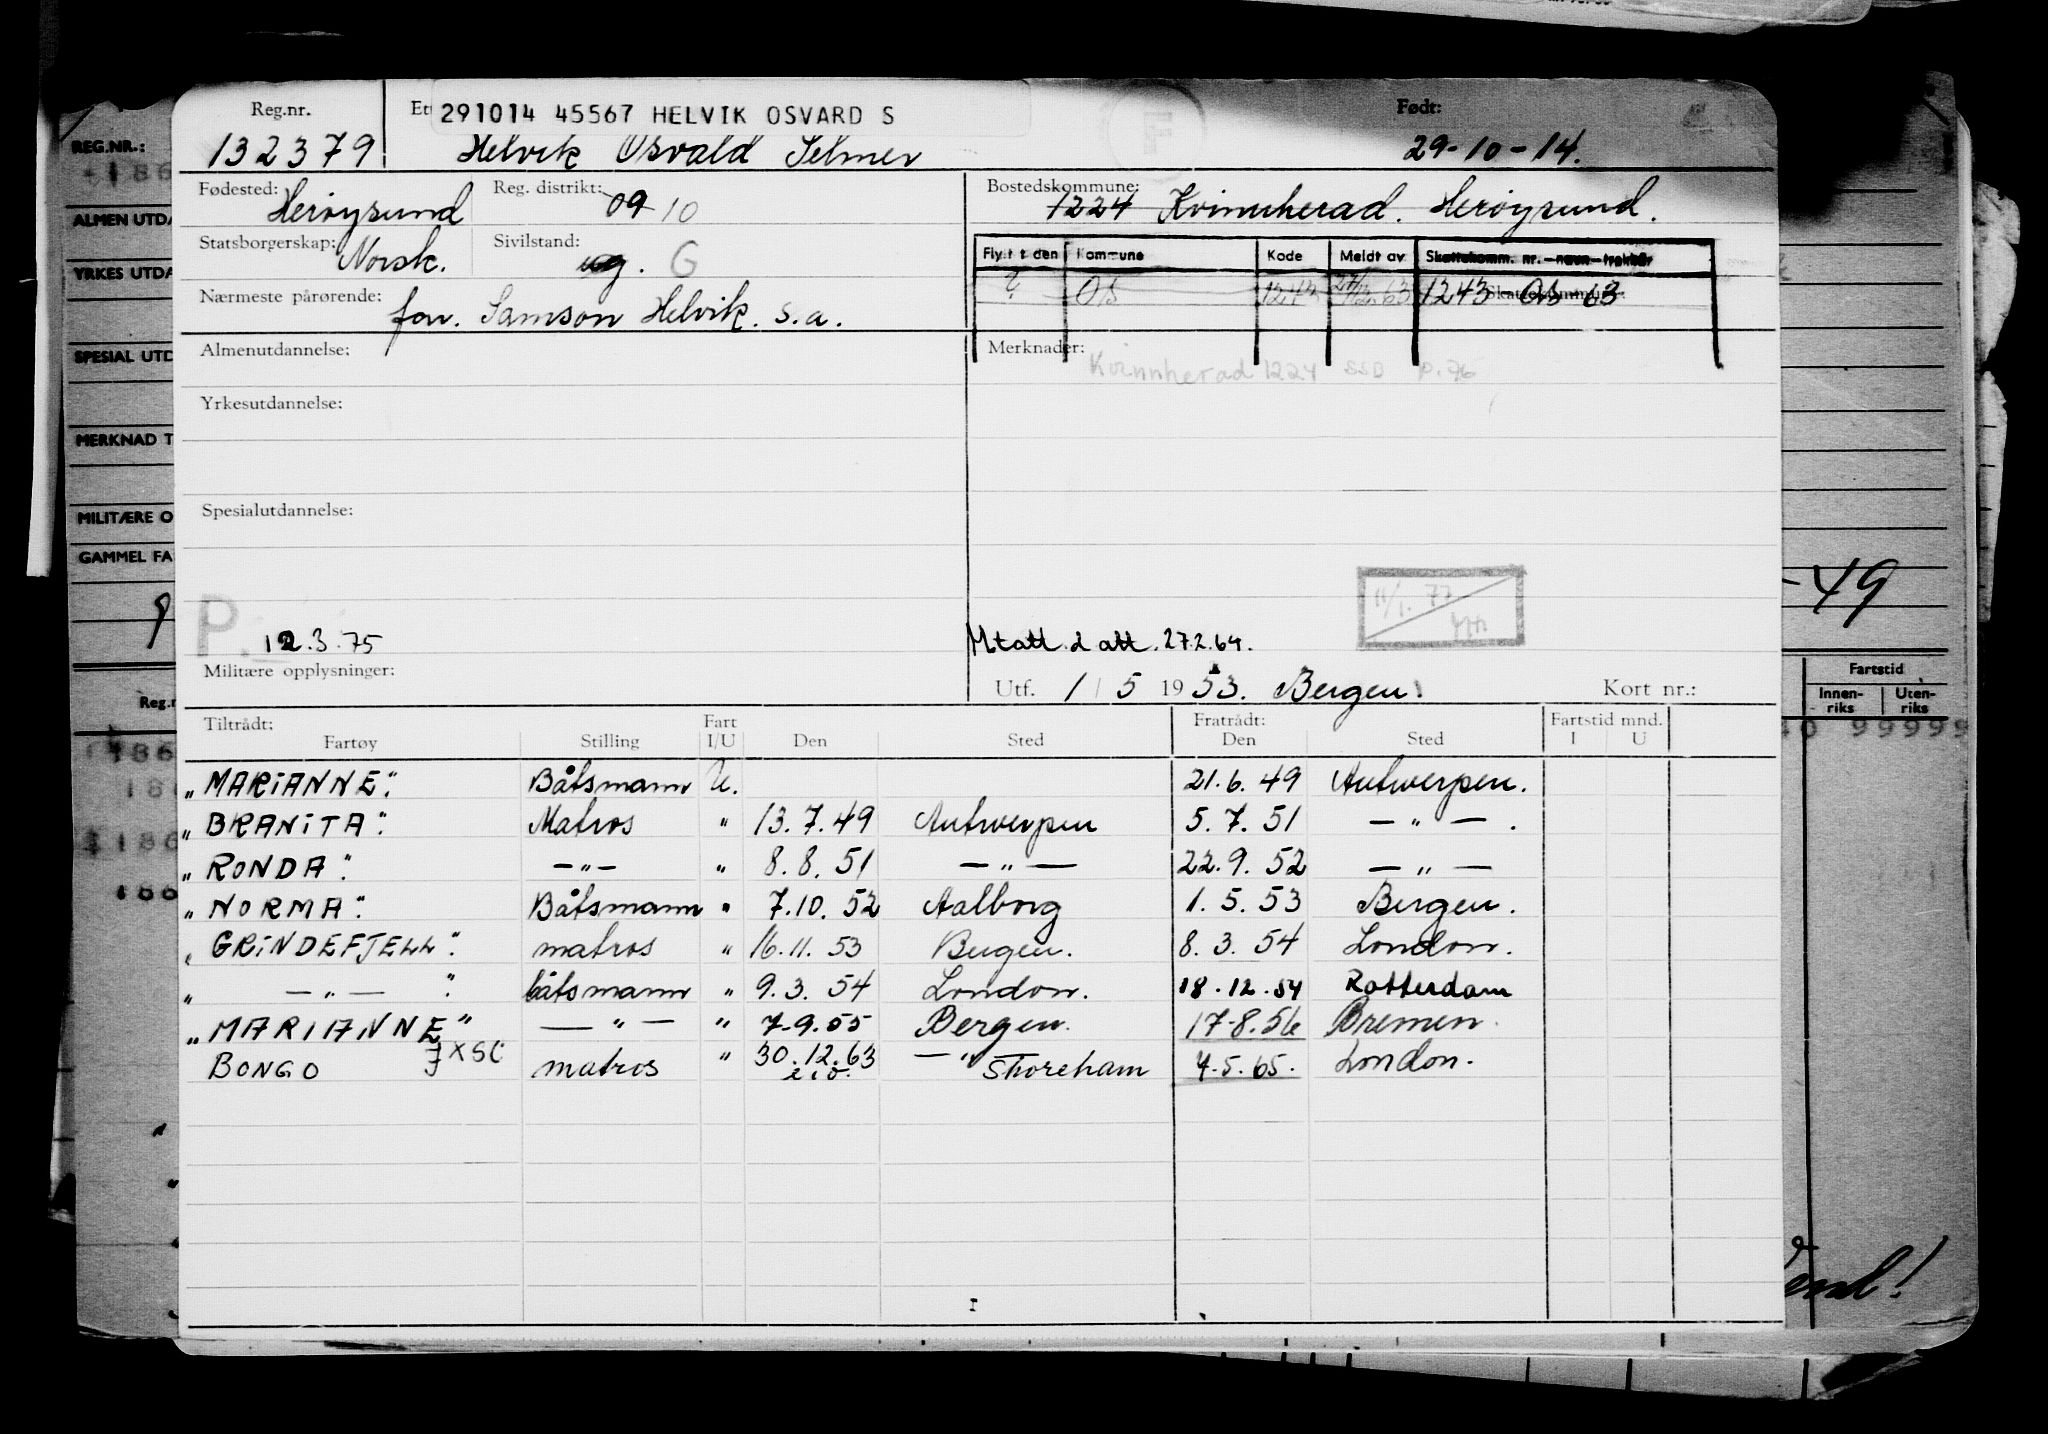 Reg.nr. Et 291014 45567 HELVIK OSVARD S Født:
132379 Helvik Osvald Selmer 29-10-14.
Fødested: Herøysund Reg. distrikt: 09 10 Bostedskommune: 1224 Kvinnherad. Herøysund.
Statsborgerskap: Norsk. Sivilstand: ug. G
Flyttt den Kommune Kode Meldt av Skattekomm. nr.-navn-trekkår
? Os 1243 27/12.63 1243 Os 63
Nærmeste pårørende: far. Samson Helvik. s.a.
Almenutdannelse: Merknader:
Kvinnherad 1224 SSB p.76
Yrkesutdannelse:
Spesialutdannelse:
11/1. 77
P. 12.3.75 Mtatt d att. 27.2.64.
Militære opplysninger: Utf. 1/5 1953. Bergen. Kort nr.:
Tiltrådt: Fart Fratrådt: Fartstid mnd.
Fartøy Stilling I/U Den Sted Den Sted I U
"MARIANNE". Båtsmann U. 21.6.49 Antwerpen.
"BRANITA". Matros " 13.7.49 Antwerpen 5.7.51 — " — .
"RONDA". — " — " 8.8.51 — " — 22.9.52 — " —
"NORMA". Båtsmann " 7.10.52 Aalborg 1.5.53 Bergen.
"GRINDEFJELL". matros " 16.11.53 Bergen. 8.3.54 London.
" — " — ". båtsmann " 9.3.54 London. 18.12.54 Rotterdam
"MARIANNE" — " — " 7-9.55 Bergen. 17-8.56 Bremen.
BONGO JXSC matros " 30.12.63 — " Shoreham 4.5.65. London.
e i o.
I
REG.NR.:
ALMEN UTDA
YRKES UTDA
SPESIAL UTD
MERKNAD T
MILITÆRE O
GAMMEL FA
-49
Fartstid
Innen-riks Uten-riks
99999